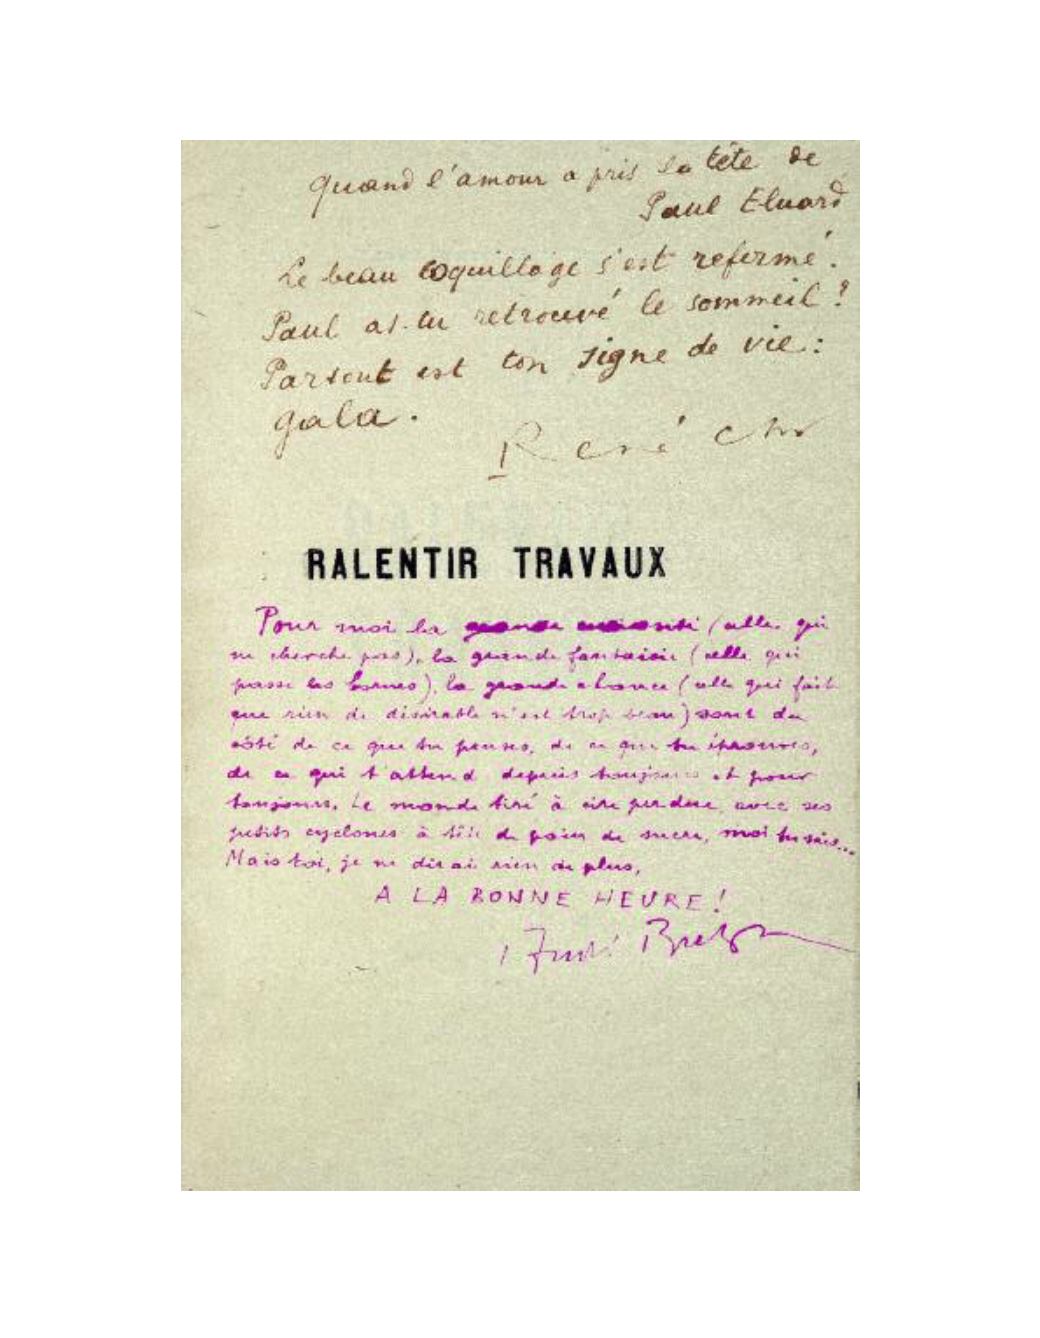 Quand l'amour a pris la tête de
Paul Eluard
Le beau coquillage s'est refermé.
Paul as-tu retrouvé le sommeil ?
Partout est ton signe de vie :
gala.
René Char
RALENTIR TRAVAUX
Pour moi la grande (celle qui
ne cherche pas), la grande fantaisie (celle qui
passe les bornes), la grande chance (celle qui fait
que rien de désirable n'est trop beau) sont du
côté de ce que tu penses, de ce que tu éprouves,
de ce qui t'attend depuis toujours et pour
toujours. Le monde tiré à cire perdue, avec ses
petits cyclones à tête de pain de sucre, moi tu sais...
Mais toi, je ne dirai rien de plus,
A LA BONNE HEURE !
André Breton